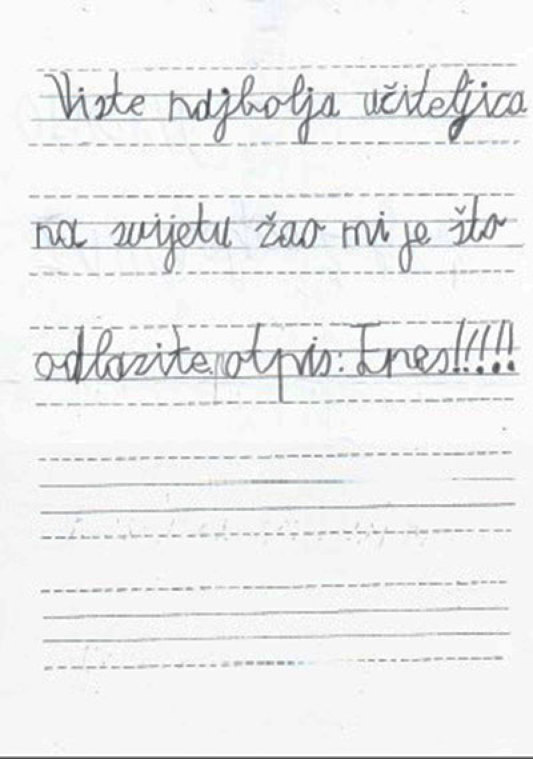 Viste najbolja učiteljica
na svijetu žao mi je što
odlazite. otpis: Enes!!!!!